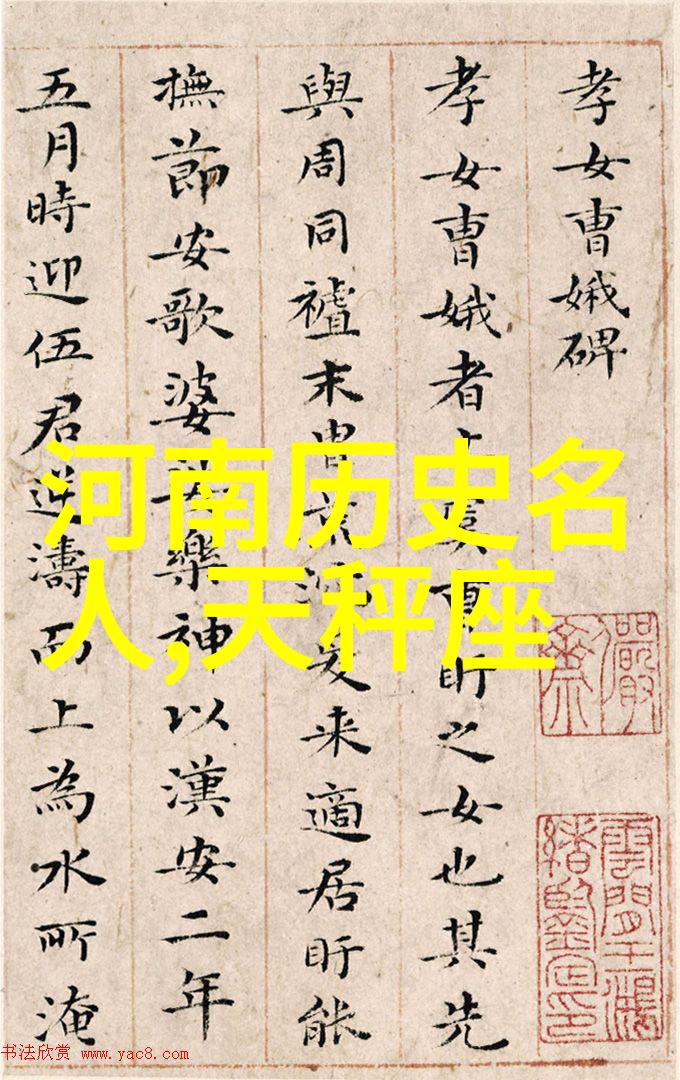 孝女曹娥碑
孝女曹娥者上虞曹盱之女也其先
與周同禮末胄荒爰来適居盱能
撫節安歌婆娑樂神以漢安二年
五月時迎伍君逆濤而上為水所淹
河南历史名
人,天秤座
儼齋
雲間王鴻
緒鑒定印
书法欣赏 www.yac8.com